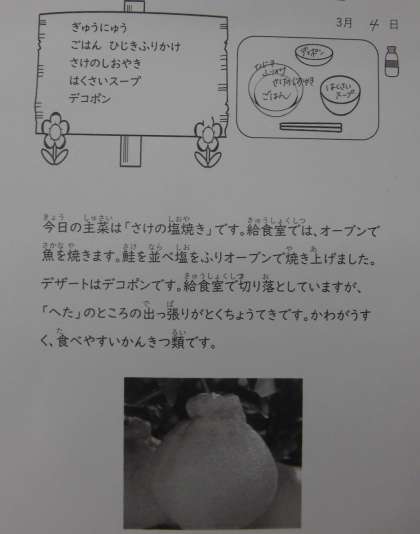 3月 4 日
ぎゅうにゅう
ごはん ひじきふりかけ
さけのしおやき
はくさいスープ
デコポン
デコポン
ひじき
ふりかけ
さけのしおやき
ごはん
はくさい
スープ
今日の主菜は「さけの塩焼き」です。給食室では、オーブンで
魚を焼きます。鮭を並べ塩をふりオーブンで焼き上げました。
デザートはデコポンです。給食室で切り落としていますが、
「へた」のところの出っ張りがとくちょうてきです。かわがうす
く、食べやすいかんきつ類です。